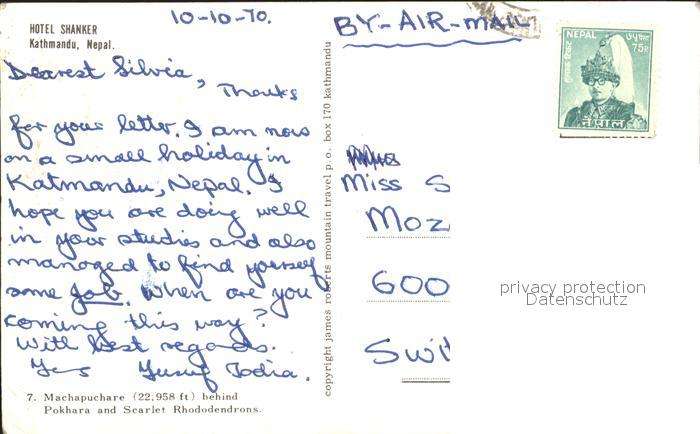 10-10-70.
HOTEL SHANKER
Kathmandu, Nepal.
Dearest Silvia,
Thanks
for your letter. I am now
on a small holiday in
Katmandu, Nepal. I
hope you are doing well
in your studies and also
managed to find yourself
some job. When are you
coming this way?
With best regards.
Yusuf
7. Machapuchare (22,958 ft) behind
Pokhara and Scarlet Rhododendrons.
copyright james roberts mountain travel p.o. box 170 kathmandu
BY-AIR-MAIL
NEPAL
75P
नेपाल
Miss S
Moz
600
Swit
privacy protection
Datenschutz